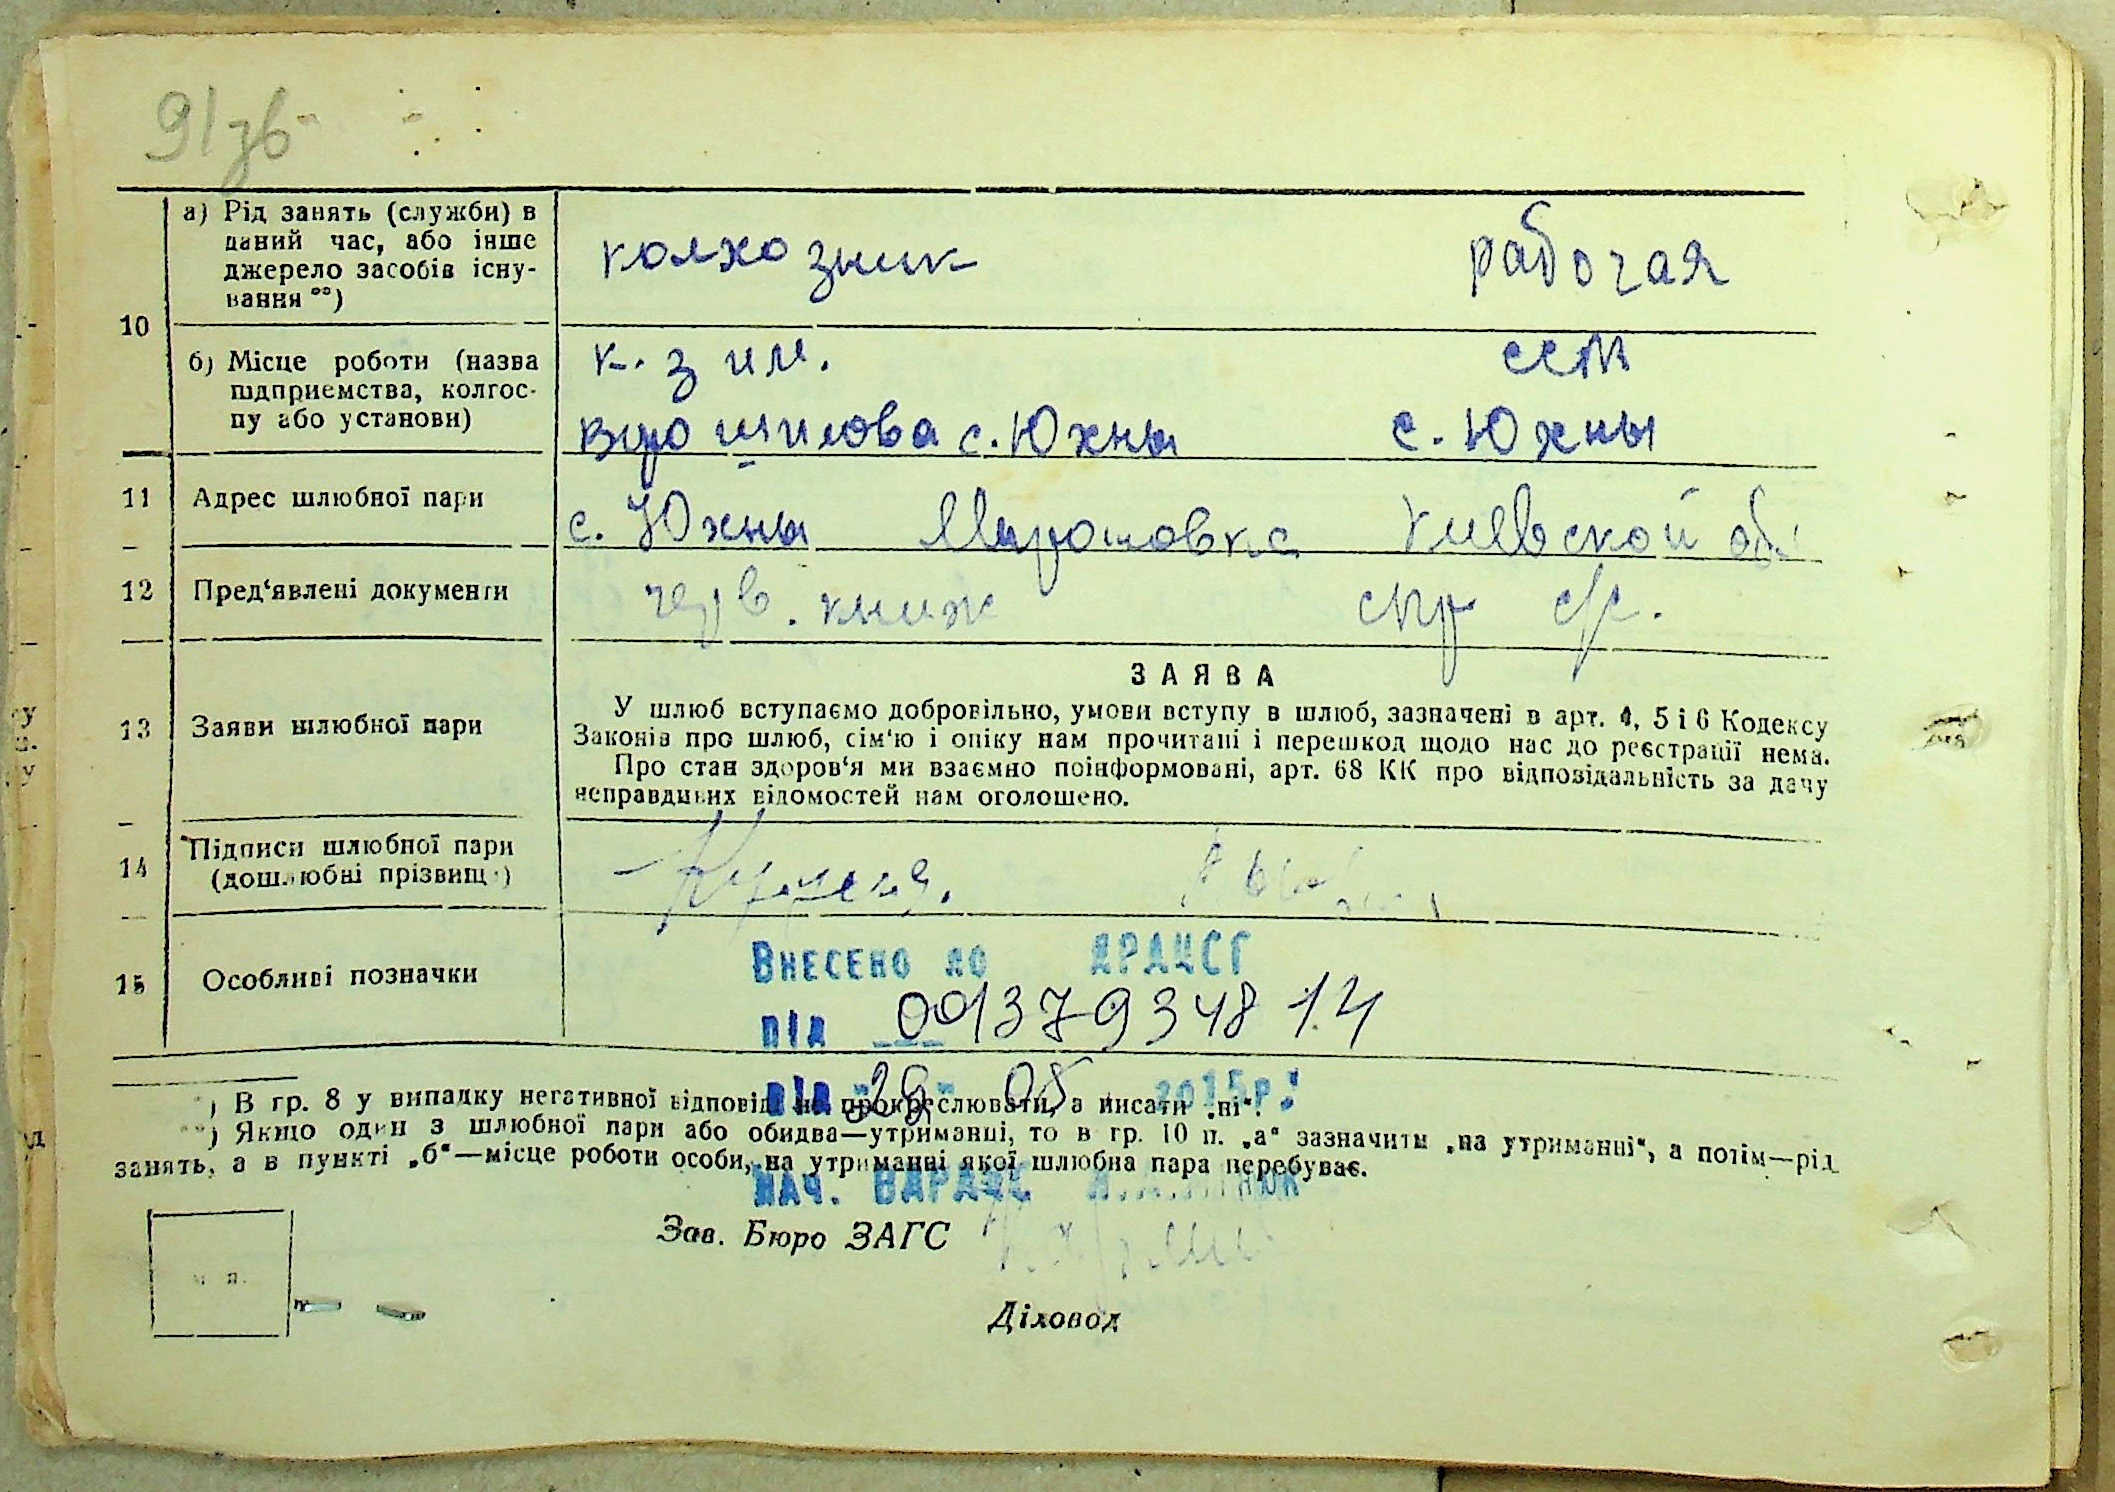 91зв
10
а) Рід занять (служби) в
даний час, або інше
джерело засобів існу-
вання **)
колхозник
рабочая
б) Місце роботи (назва
підприємства, колгос-
пу або установи)
к. з им.
Ворошилова с. Юхны
с. Юхны
11
Адрес шлюбної пари
с. Юхны Мироновка Киевской обл
12
Пред‘явлені документи
черв. книж
спр с/с.
13
Заяви шлюбної пари
ЗАЯВА
У шлюб вступаємо добровільно, умови вступу в шлюб, зазначені в арт. 4, 5 і 6 Кодексу
Законів про шлюб, сім‘ю і опіку нам прочитані і перешкод щодо нас до реєстрації нема.
Про стан здоров‘я ми взаємно поінформовані, арт. 68 КК про відповідальність за дачу
неправдивих відомостей нам оголошено.
14
Підписи шлюбної пари
(дошлюбні прізвища)
15
Особливі позначки
Внесено до ДРАЦСГ
під 00137934814
від "29" 05 2015р.
*) В гр. 8 у випадку негативної відповіді не прокреслювати, а писати „ні“.
**) Якщо один з шлюбної пари або обидва—утриманці, то в гр. 10 п. „а“ зазначити „на утриманні“, а потім—рід
занять, а в пункті „б“—місце роботи особи, на утриманні якої шлюбна пара перебуває.
Нач. ВДРАЦС
Зав. Бюро ЗАГС
м п.
Діловод